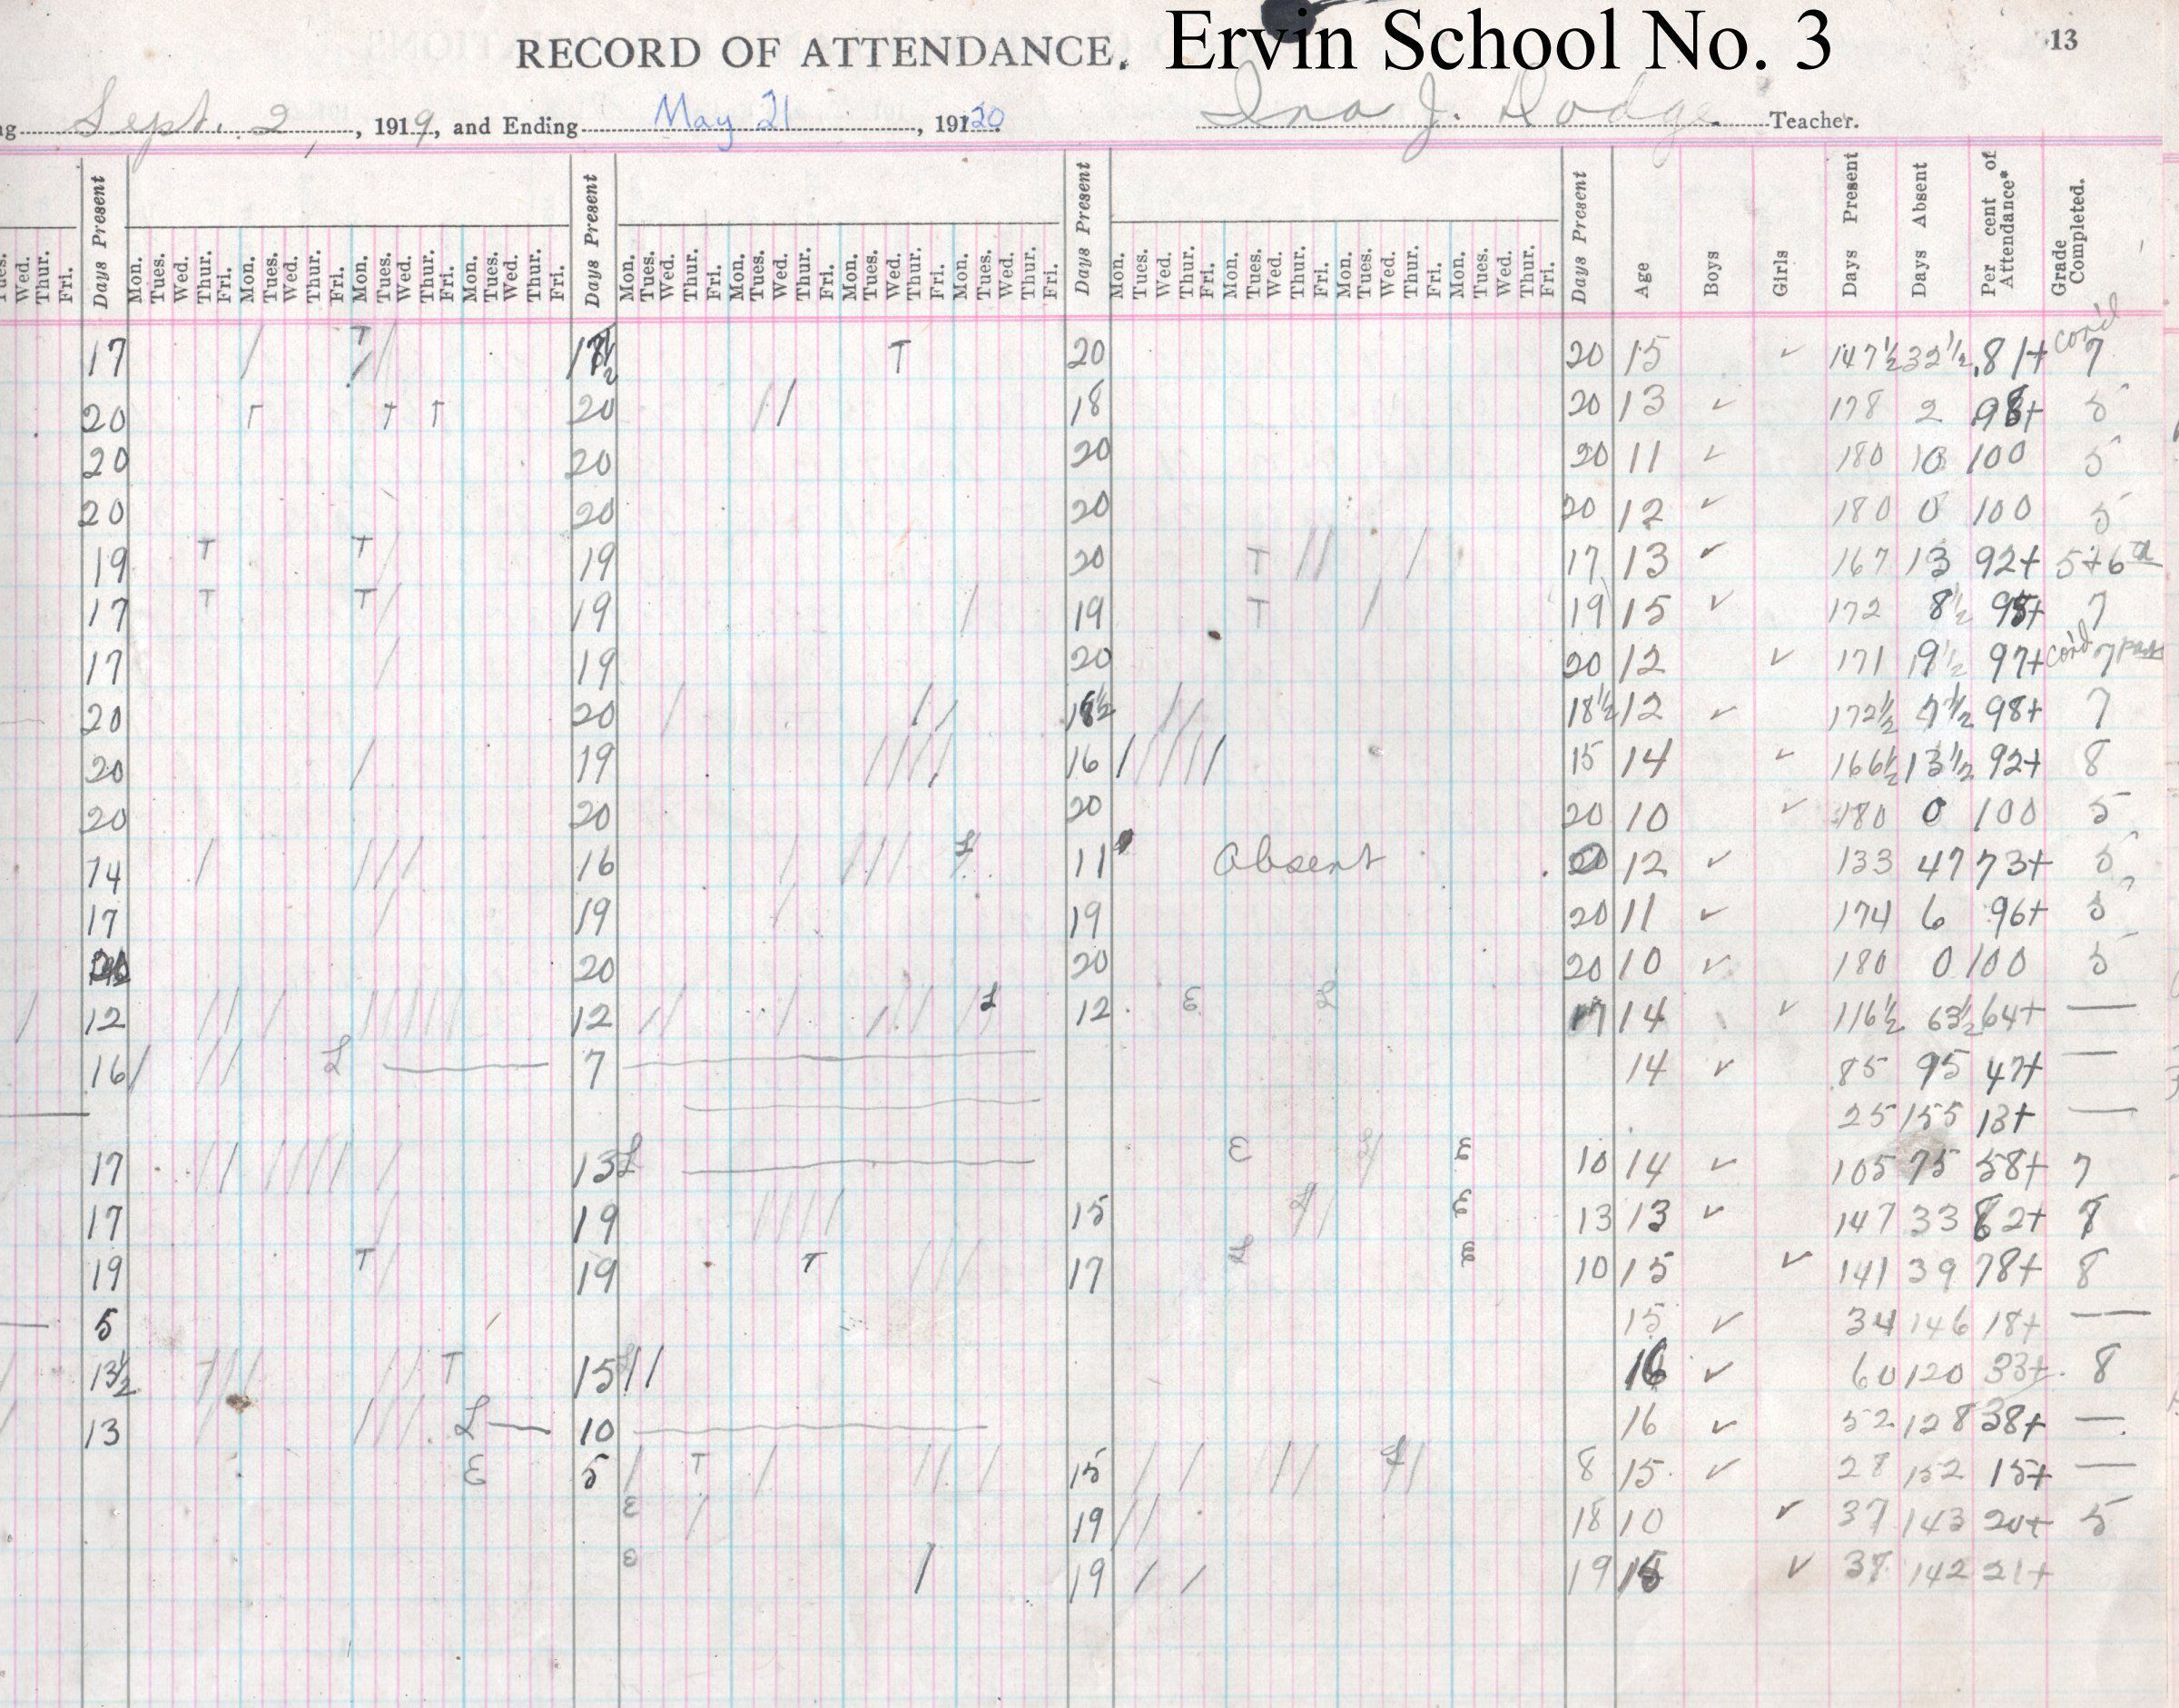 RECORD OF ATTENDANCE. Ervin School No. 3 13
Sept. 2, 1919, and Ending May 21, 1920. Ina J. Dodge Teacher.
Days Present Days Present Days Present Days Present Age Boys Girls Days Present Days Absent Per cent of Attendance* Grade Completed.
Wed. Thur. Fri. Mon. Tues. Wed. Thur. Fri. Mon. Wed. Thur. Fri. Mon. Tues. Wed. Thur. Fri. Mon. Tues. Wed. Thur. Fri. Mon. Tues. Wed. Thur. Fri. Mon. Tues. Wed. Thur. Fri. Mon. Tues. Wed. Thur. Fri. Mon. Tues. Wed. Thur. Fri. Mon. Tues. Wed. Thur. Fri. Mon. Tues. Wed. Thur. Fri. Mon. Tues. Wed. Thur. Fri. Mon. Tues. Wed. Thur. Fri.
17 / T / / T 20 20 15 ✓ 147½ 32½ .81+ con'd 7
20 T T T 20 / / 18 20 13 ✓ 178 2 98+ 5
20 20 20 20 11 ✓ 180 0 100 5
20 20 20 20 12 ✓ 180 0 100 5
19 T T / 19 20 T / / / 17 13 ✓ 167 13 92+ 5+6th
17 T T / 19 / 19 T / 19 15 ✓ 172 8½ 95+ 7
17 / 19 20 20 12 ✓ 171 9½ 97+ con'd 7
20 20 / / / 18½ / / 18½ 12 ✓ 172½ 7½ 98+ 7
20 / 19 / / / / 16 / / / / / 15 14 ✓ 166½ 13½ 92+ 8
20 20 20 20 10 ✓ 180 0 100 5
14 / / / / 16 / / / / L 11 Absent 12 ✓ 133 47 73+ 5
17 / 19 / 19 20 11 ✓ 174 6 96+ 5
20 20 20 10 ✓ 180 0 100 5
/ 12 / / / / / / / / 12 / / / / / / / L 12 E L 17 14 ✓ 116½ 63½ 64+ —
16 / / / L — 7 — 14 ✓ 85 95 47+ —
— — 25 155 13+ —
17 / / / / / / / 13 L — E L/ E 10 14 ✓ 105 75 58+ 7
17 / 19 / / / / 15 L / / E 13 13 ✓ 147 33 82+ 8
19 T / 19 T / / / 17 L E 10 15 ✓ 141 39 78+ 8
— 5 15 ✓ 34 146 18+ —
/ 13½ / / / / / T 15 / / 16 ✓ 60 120 33+ 8
/ 13 / / / / L — 10 — 16 ✓ 52 128 38+ —
E 5 / T / / / / 15 / / / / L / / 8 15 ✓ 28 152 15+ —
E / 19 / / 18 10 ✓ 37 143 20+ 5
E / 19 / / 19 ✓ 38 142 21+